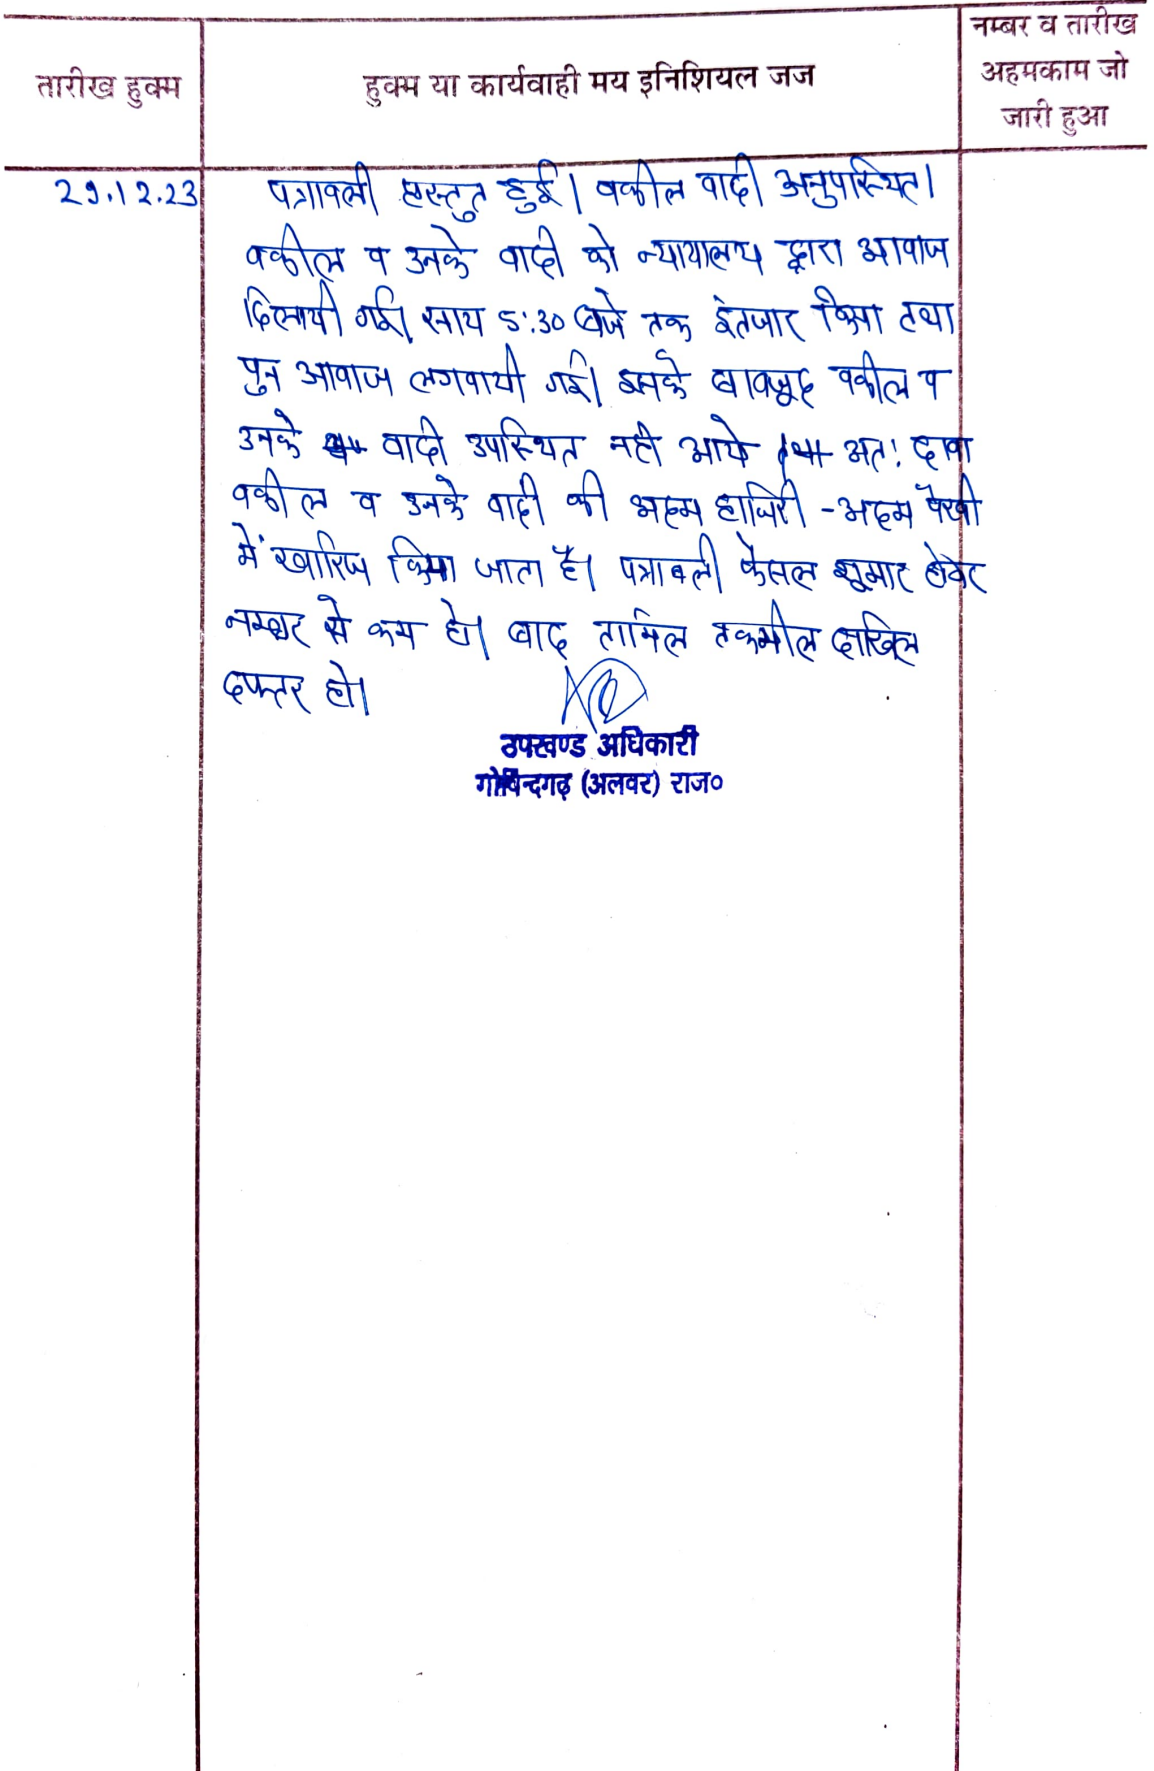 तारीख हुक्म
हुक्म या कार्यवाही मय इनिशियल जज
नम्बर व तारीख
अहमकाम जो
जारी हुआ
29.12.23
पत्रावली प्रस्तुत हुई। वकील वादी अनुपस्थित।
वकील व उनके वादी को न्यायालय द्वारा आवाज
दिलायी गई। साय 5:30 बजे तक इंतजार किया तथा
पुन आवाज लगवायी गई। इसके बावजूद वकील व
उनके वादी उपस्थित नही आये अत: दावा
वकील व उनके वादी की अदम हाजिरी - अदम पैरवी
में खारिज किया जाता है। पत्रावली फैसल शुमार होकर
नम्बर से कम हो। बाद तामिल तकमील दाखिल
दफ्तर हो।
उपखण्ड अधिकारी
गोविन्दगढ़ (अलवर) राज०